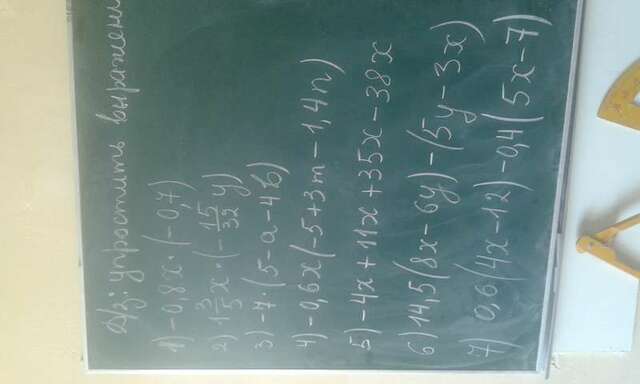 Д/з: упростить выражени
1) -0,8x · (-0,7)
2) 1 3/5 x · (- 15/32 y)
3) -7 · (5 - a - 4b)
4) -0,6x(-5+3m - 1,4n)
5) -4x + 11x + 35x - 38x
6) 14,5(8x - 6y) - (5y - 3x)
7) 0,6(4x - 12) - 0,4(5x - 7)